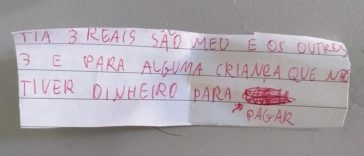 TIA 3 REAIS SÃO MEU E OS OUTROS
3 E PARA ALGUMA CRIANÇA QUE NÃO
TIVER DINHEIRO PARA
PAGAR